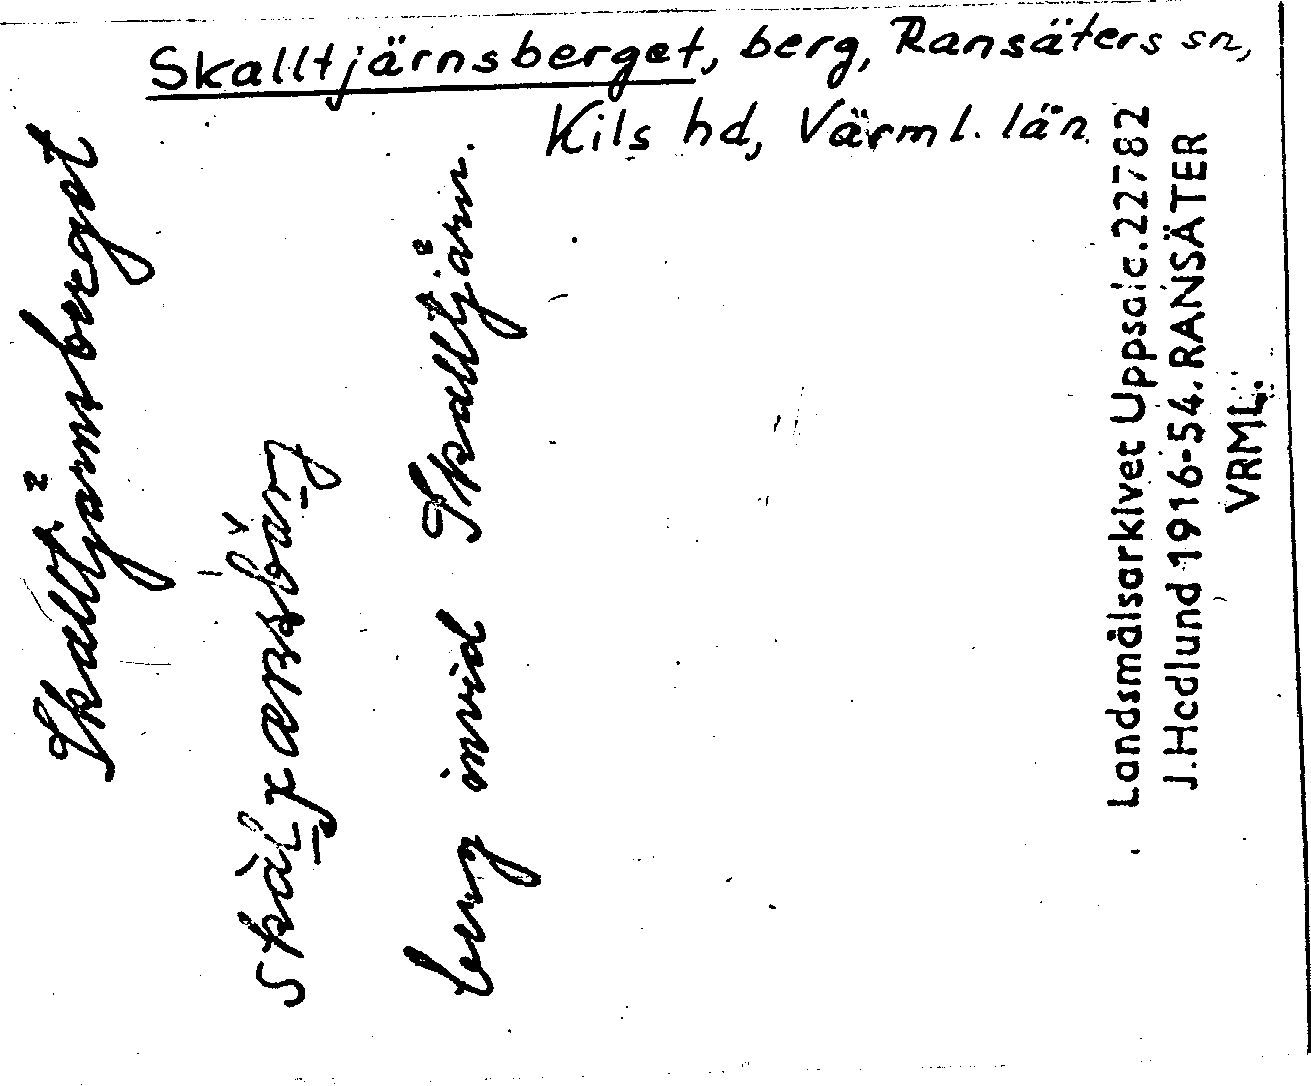 Skalltjärnsberget, berg, Ransäters sn,
Kils hd, Värml. län
Skalltjärnsberget
berg invid Skalltjärn.
Landsmålsarkivet Uppsala. 22782
J. Hedlund 1916-54. RANSÄTER
VRML.